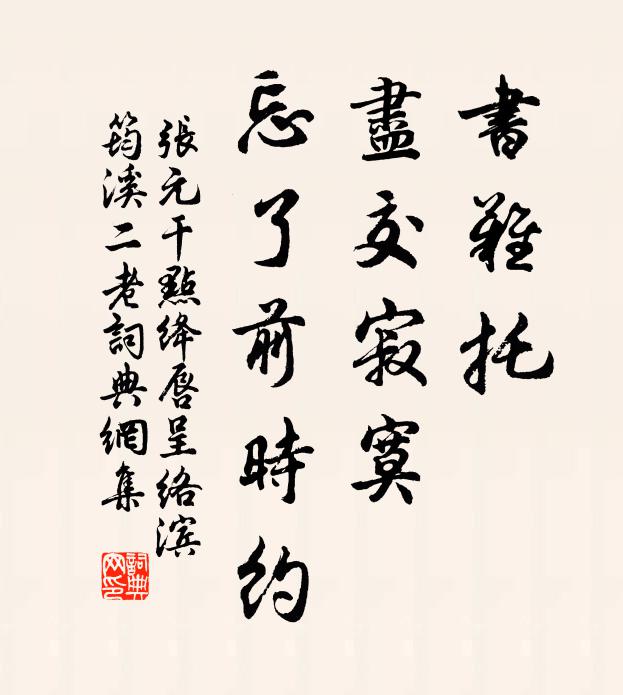 書難托
盡交寂寞
忘了前時約
張元干點絳唇呈络滨
筠溪二老詞典網集
詞典网印